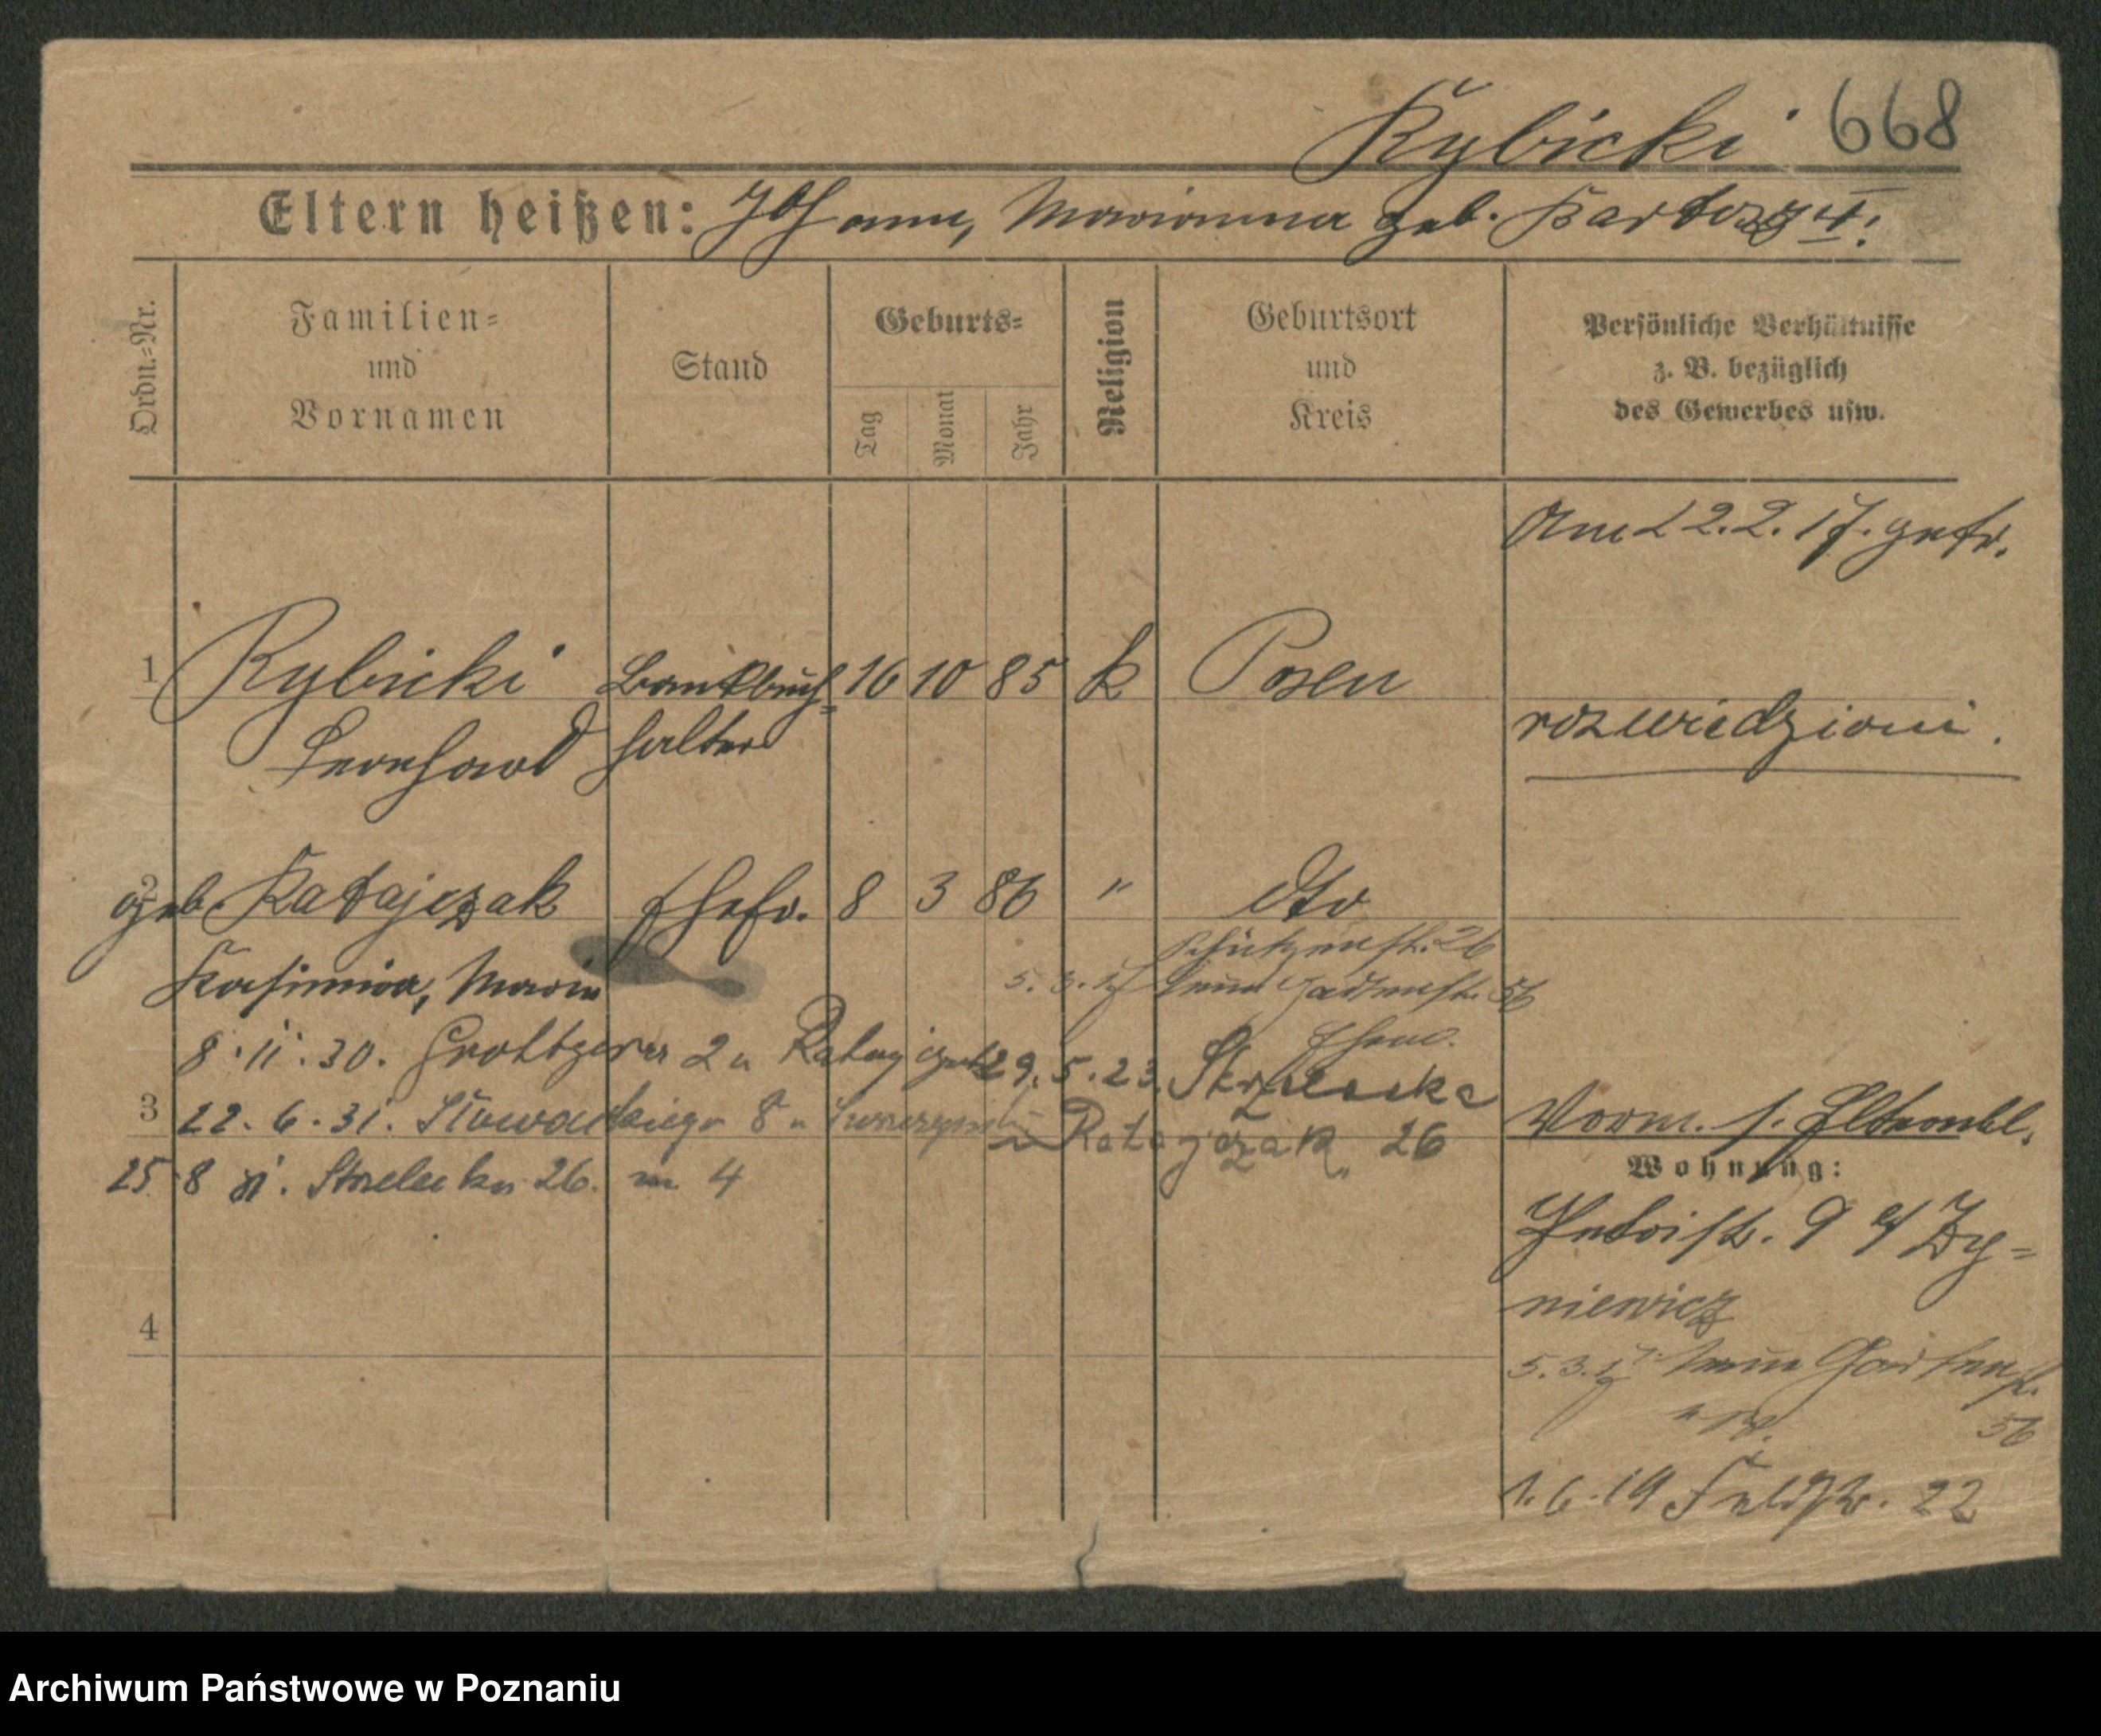 Rybicki 668
Eltern heißen: Johann, Marianna geb. Bartosz
Ordn.-Nr.
Familien-
und
Vornamen
Stand
Geburts-
Tag
Monat
Jahr
Religion
Geburtsort
und
Kreis
Persönliche Verhältnisse
z. B. bezüglich
des Gewerbes usw.
Am 22.2.17. getr.
1 Rybicki Bankbuch- 16 10 85 k Posen
Bernhard halter
rozwiedzioni.
2 geb. Ratajczak Ehefr. 8 3 86 " dto
Schützenstr. 26
Kasimira, Maria
5.3.17 Neue Gartenstr. 56
8.11.30. Grottgera 2 u Ratajczak
Ehem.
29.5.23. Strzelecka
3 22.6.31. Słowackiego 8 u
u Ratajczak 26
Vorm. s. Elternbl.
25 8 XI. Strzelecka 26. m 4
Wohnung:
Petristr. 9 b/ Zy-
niewicz
4
5.3.17 Neue Gartenstr.
56
1.6.19 Feldstr. 22
Archiwum Państwowe w Poznaniu